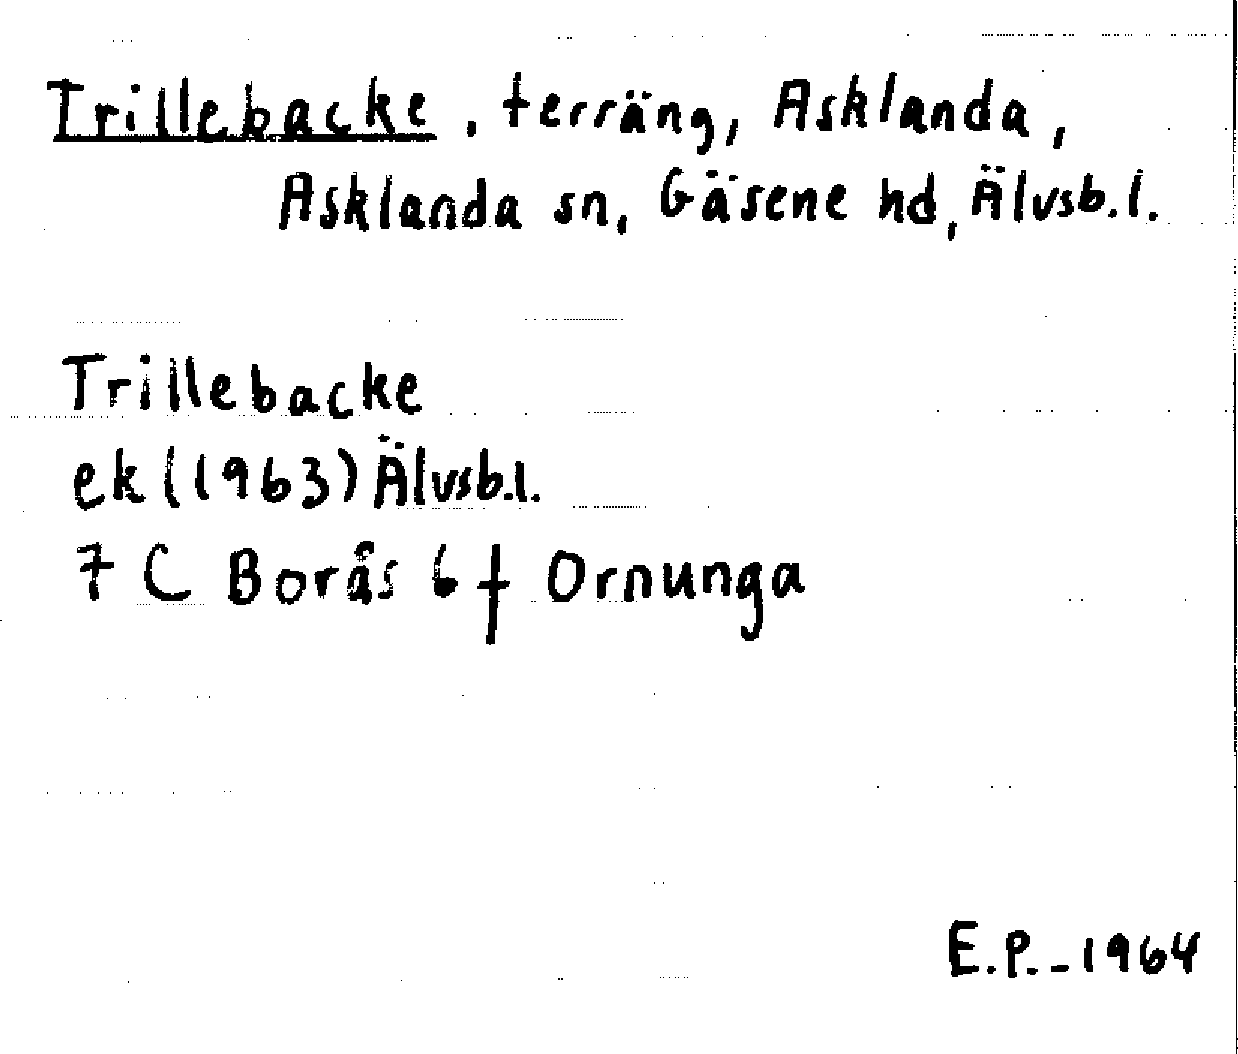 Trillebacke, terräng, Asklanda,
Asklanda sn, Gäsene hd, Älvsb.l.
Trillebacke
ek (1963) Älvsb.l.
7 C Borås 6 f Ornunga
E.P.-1964